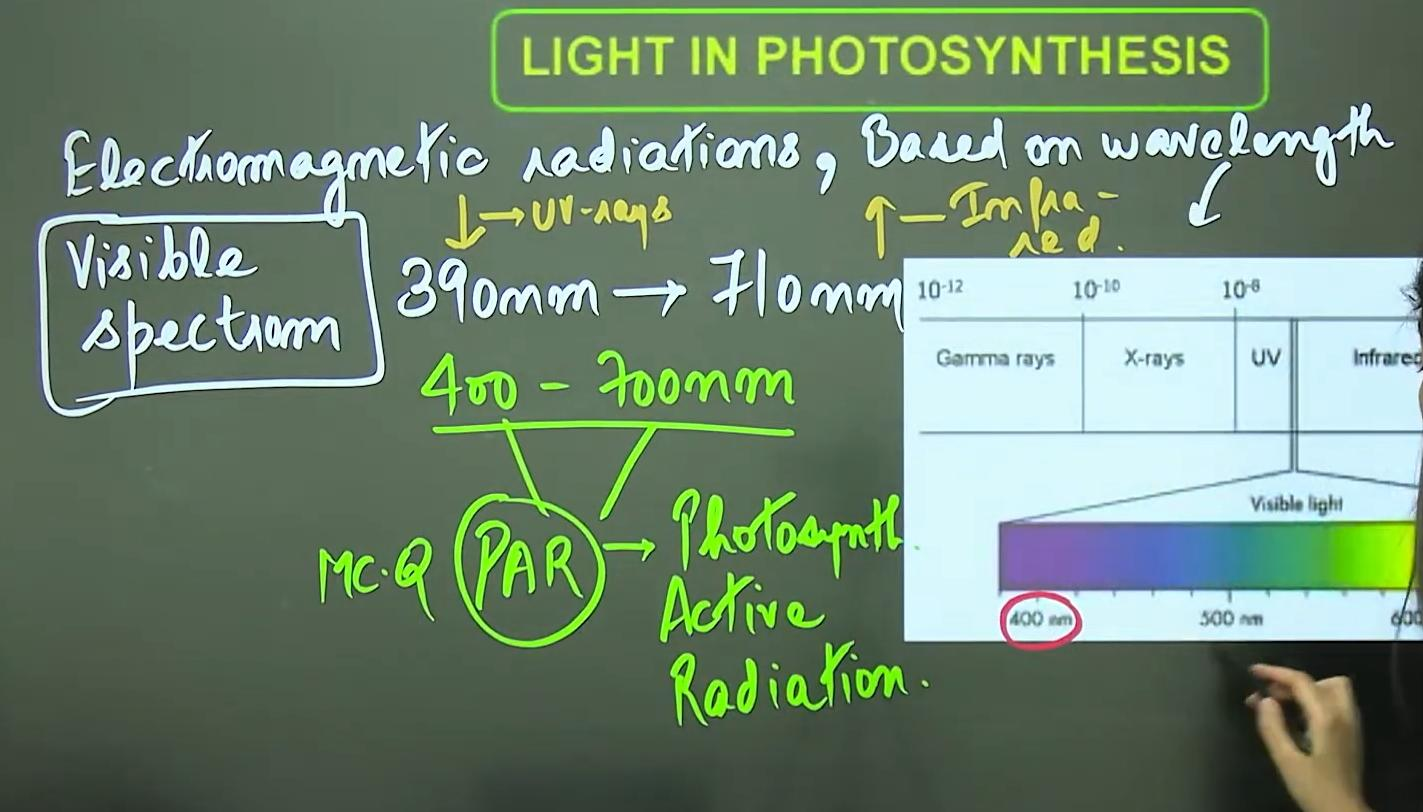 LIGHT IN PHOTOSYNTHESIS
Electromagnetic radiations, Based on wavelength
↓→UV-rays ↑—Infra-
red.
Visible
spectrum
390nm → 710nm
400 - 700nm
MC.Q PAR → Photosynth.
Active
Radiation.
10-12 10-10 10-8
Gamma rays X-rays UV Infrared
Visible light
400 nm 500 nm 600